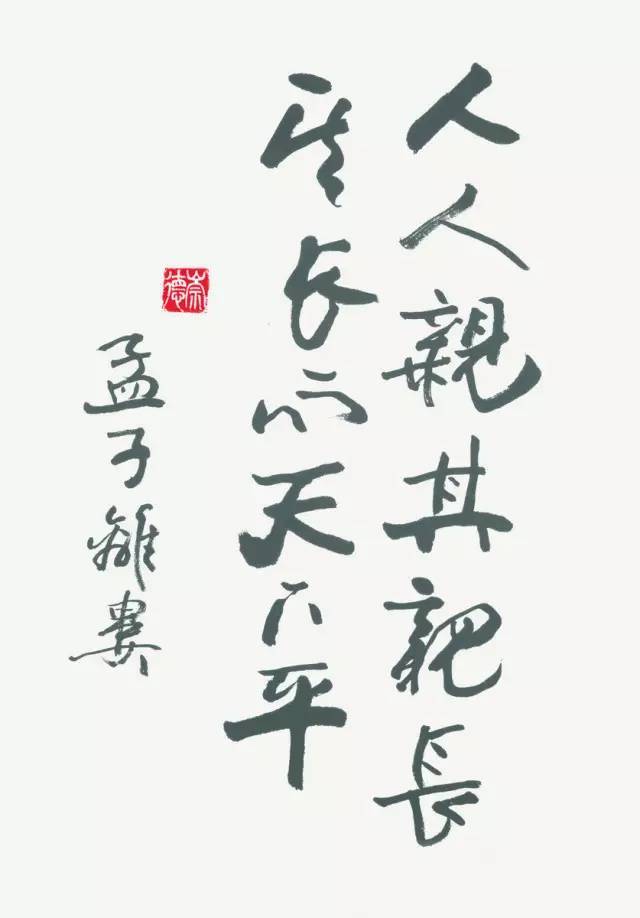 人人親其親長
其长而天下平
孟子離婁
崇德